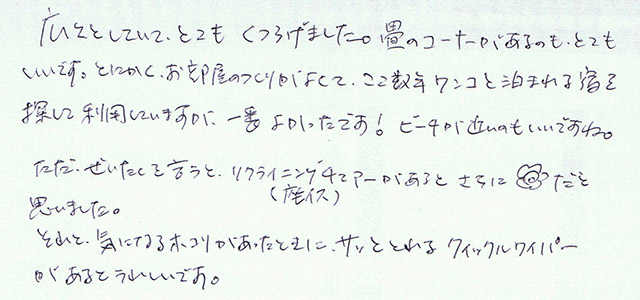 広々としていて、とても くつろげました。畳のコーナーがあるのも、とても
いいです。とにかく、お部屋のつくりがよくて、ここ数年ワンコと泊まれる宿を
探して利用していますが、一番 よかったです! ビーチが近いのもいいですね。
ただ、ぜいたくを言うと、リクライニングチェアーがあると さらに だと
(座イス)
思いました。
それと、気になるホコリがあったときに、サッととれる クイックルワイパー
があるとうれしいです。